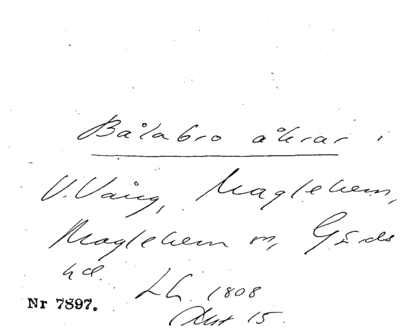 Bålabro åkrar i
V. Vång, Maglehem,
Maglehem sn, Gärds
hd. LC. 1808
Akt 15.
Nr 7897.